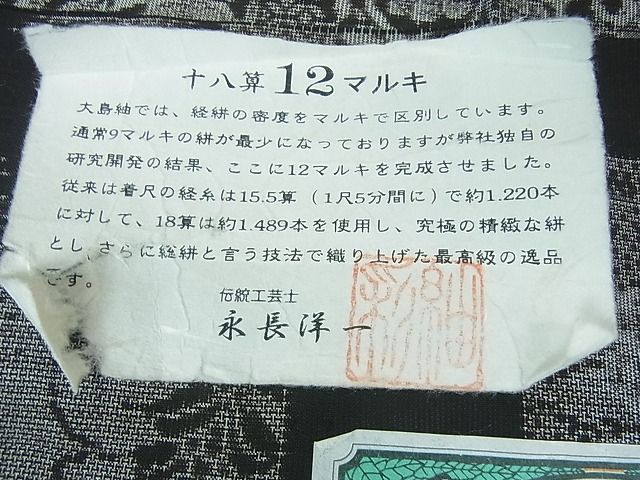 十八算12マルキ
大島紬では、経絣の密度をマルキで区別しています。
通常9マルキの絣が最少になっておりますが弊社独自の
研究開発の結果、ここに12マルキを完成させました。
従来は着尺の経糸は15.5算（1尺5分間に）で約1.220本
に対して、18算は約1.489本を使用し、究極の精緻な絣
とし、さらに総絣と言う技法で織り上げた最高級の逸品
です。
伝統工芸士
永長洋一